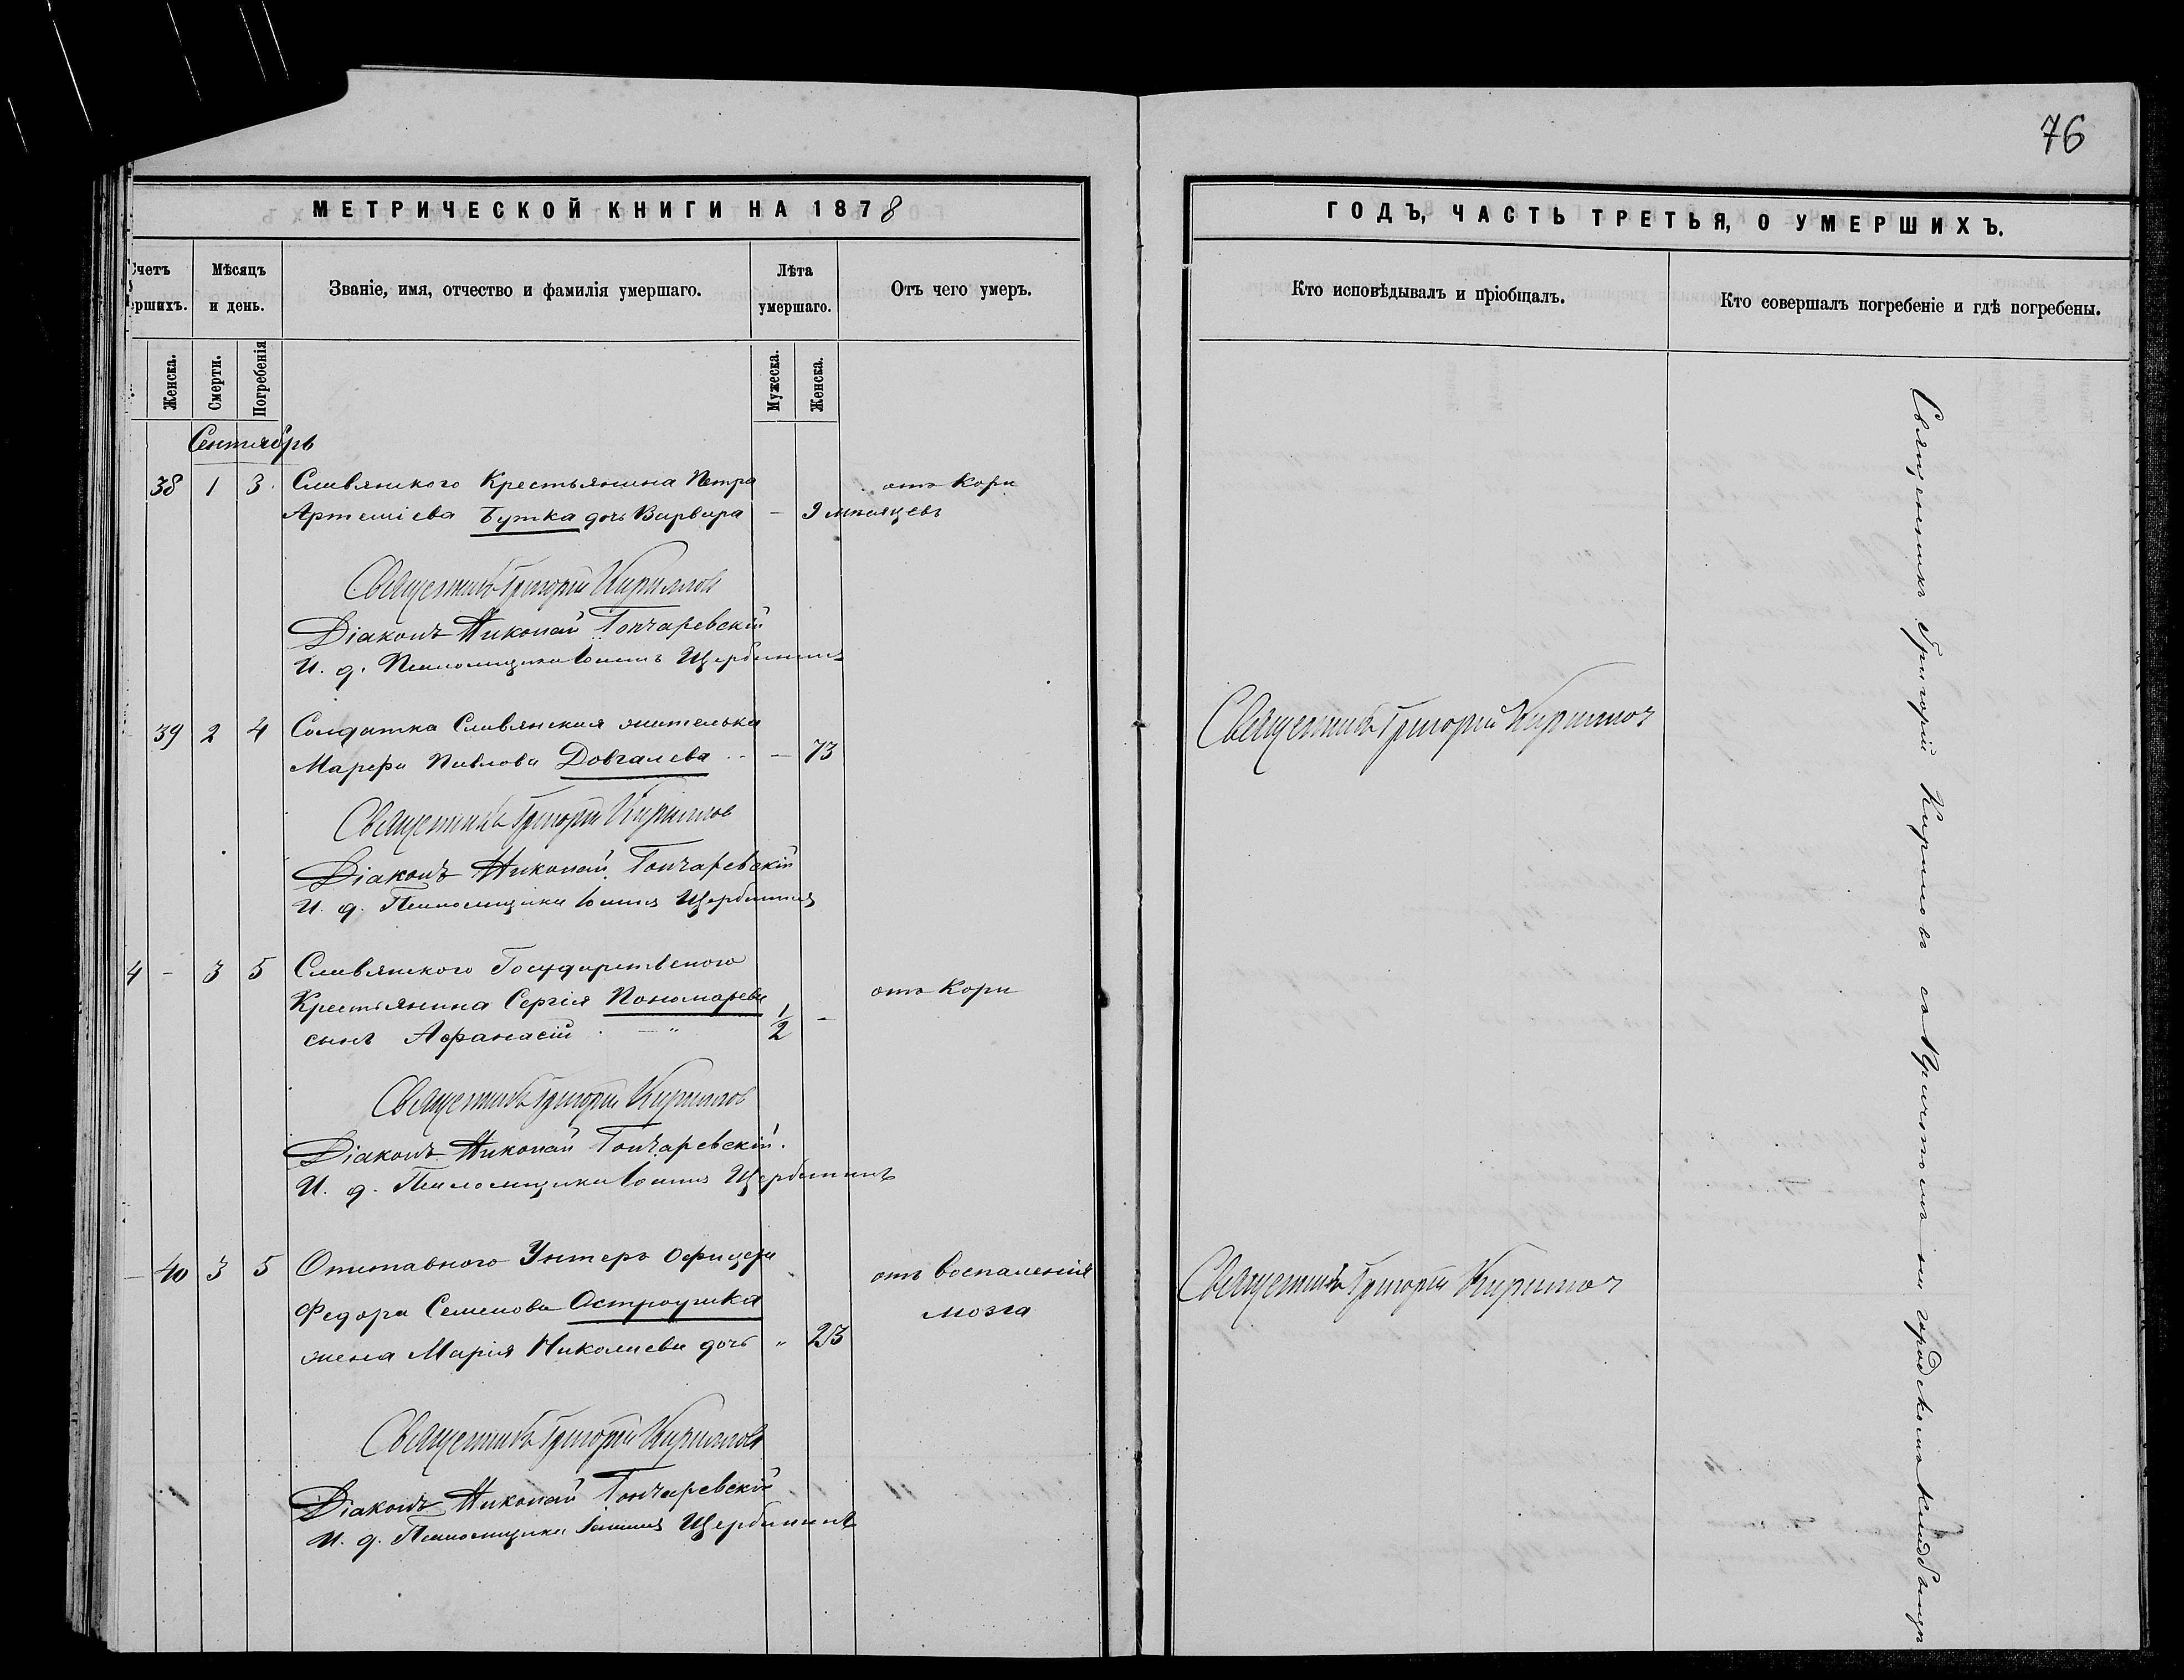 76
МЕТРИЧЕСКОЙ КНИГИ НА 1878
ГОДЪ, ЧАСТЬ ТРЕТЬЯ, О УМЕРШИХЪ.
Счетъ
ершихъ.
Мѣсяцъ
и день.
Званіе, имя, отчество и фамилія умершаго.
Лѣта
умершаго.
Отъ чего умеръ.
Кто исповѣдывалъ и пріобщалъ.
Кто совершалъ погребеніе и гдѣ погребены.
Женска.
Смерти.
Погребенія
Мужеска.
Женска.
Сентябрь
38 1 3 Славянского Крестьянина Петра отъ Кори
Артеміева Бутка дочь Варвара - 9 мѣсяцевъ
Священникъ Григорій Кирилловъ
Діаконъ Николай Гончаревскій
И. д. Псаломщика Іоаннъ Щербининъ
39 2 4 Солдатка Славянская жителька
Марфа Павлова Довгалева - 73
Священникъ Григорій Кирилловъ
Священникъ Григорій Кирилловъ
Діаконъ Николай Гончаревскій
И. д. Псаломщика Іоаннъ Щербининъ
4 - 3 5 Славянского Государственого
Крестьянина Сергія Пономарева отъ Кори
сынъ Афанасій 1/2 -
Священникъ Григорій Кирилловъ
Діаконъ Николай Гончаревскій.
И. д. Псаломщика Іоаннъ Щербининъ
- 40 3 5 Отставного Унтеръ Офицера отъ воспаленія
Федора Семенова Остроушка мозга
жена Марія Николаева дочь " 23
Священникъ Григорій Кирилловъ
Священникъ Григорій Кирилловъ
Діаконъ Николай Гончаревскій
И. д. Псаломщика Іоаннъ Щербининъ
Священникъ Григорій Кирилловъ съ Причтомъ на городскомъ Кладбищѣ